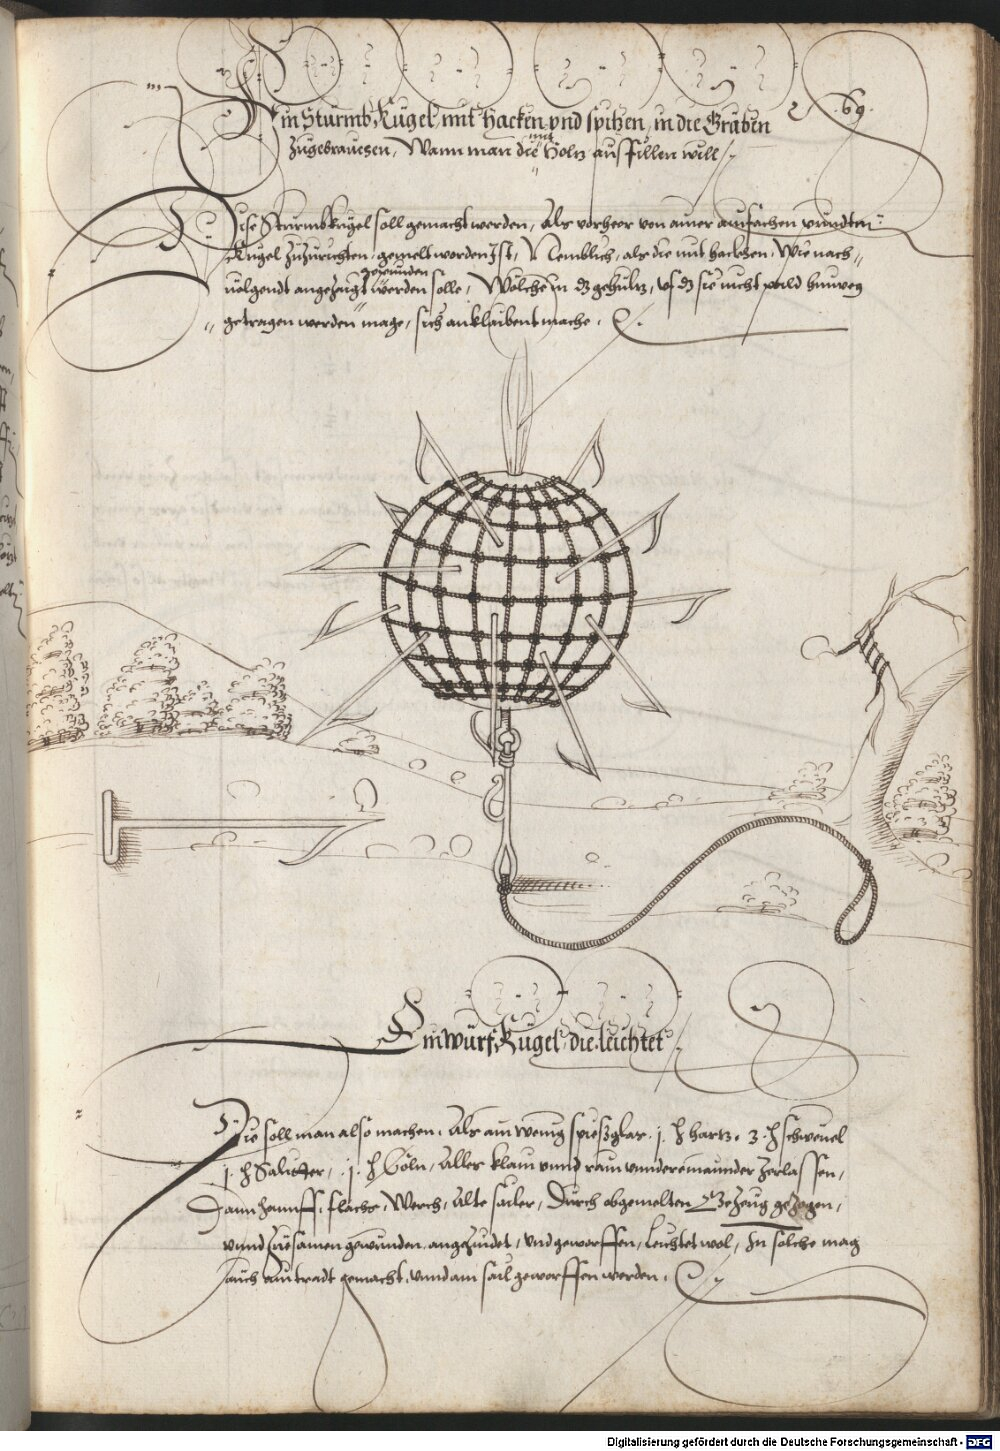 .69.
Ein Sturmb Kugel mit Hacken vnd spitzen, in die Gräben
mit
Zugebrauchen, Wann man die Höltz ausfillen will
Dise Sturmbkugel soll gemacht werden, Als vorher von ainer ainfachen runden
Kugel Zuzurichten gemelt worden Ist, Nemblich, als die mit hacken, Wie nach
gefunden
uolgendt angezaigt werden solle, Welche in dz gehültz, vf dz sie nicht pald hinweg
getragen werden mage, sich anklaibent mache.
Ein wurf Kugel die leichtet
Die soll man also machen. Als ain wenig spiesglas. j. ℔ hartz. 3. ℔ schweuel
j. ℔ Saliter, j. ℔ Cöln, Alles klain vnnd rain vnndereinannder Zerlassen,
Dann hannff, flachs, Werch, Alte sailer, Durch obgemelten Gezeug gezogen,
vnnd Zuesamen gewunden angezundet, Vnd geworffen, Leuchtet wol, In solche mag
auch ain tradt gemacht, vnnd am sail geworffen werden.
Digitalisierung gefördert durch die Deutsche Forschungsgemeinschaft - DFG